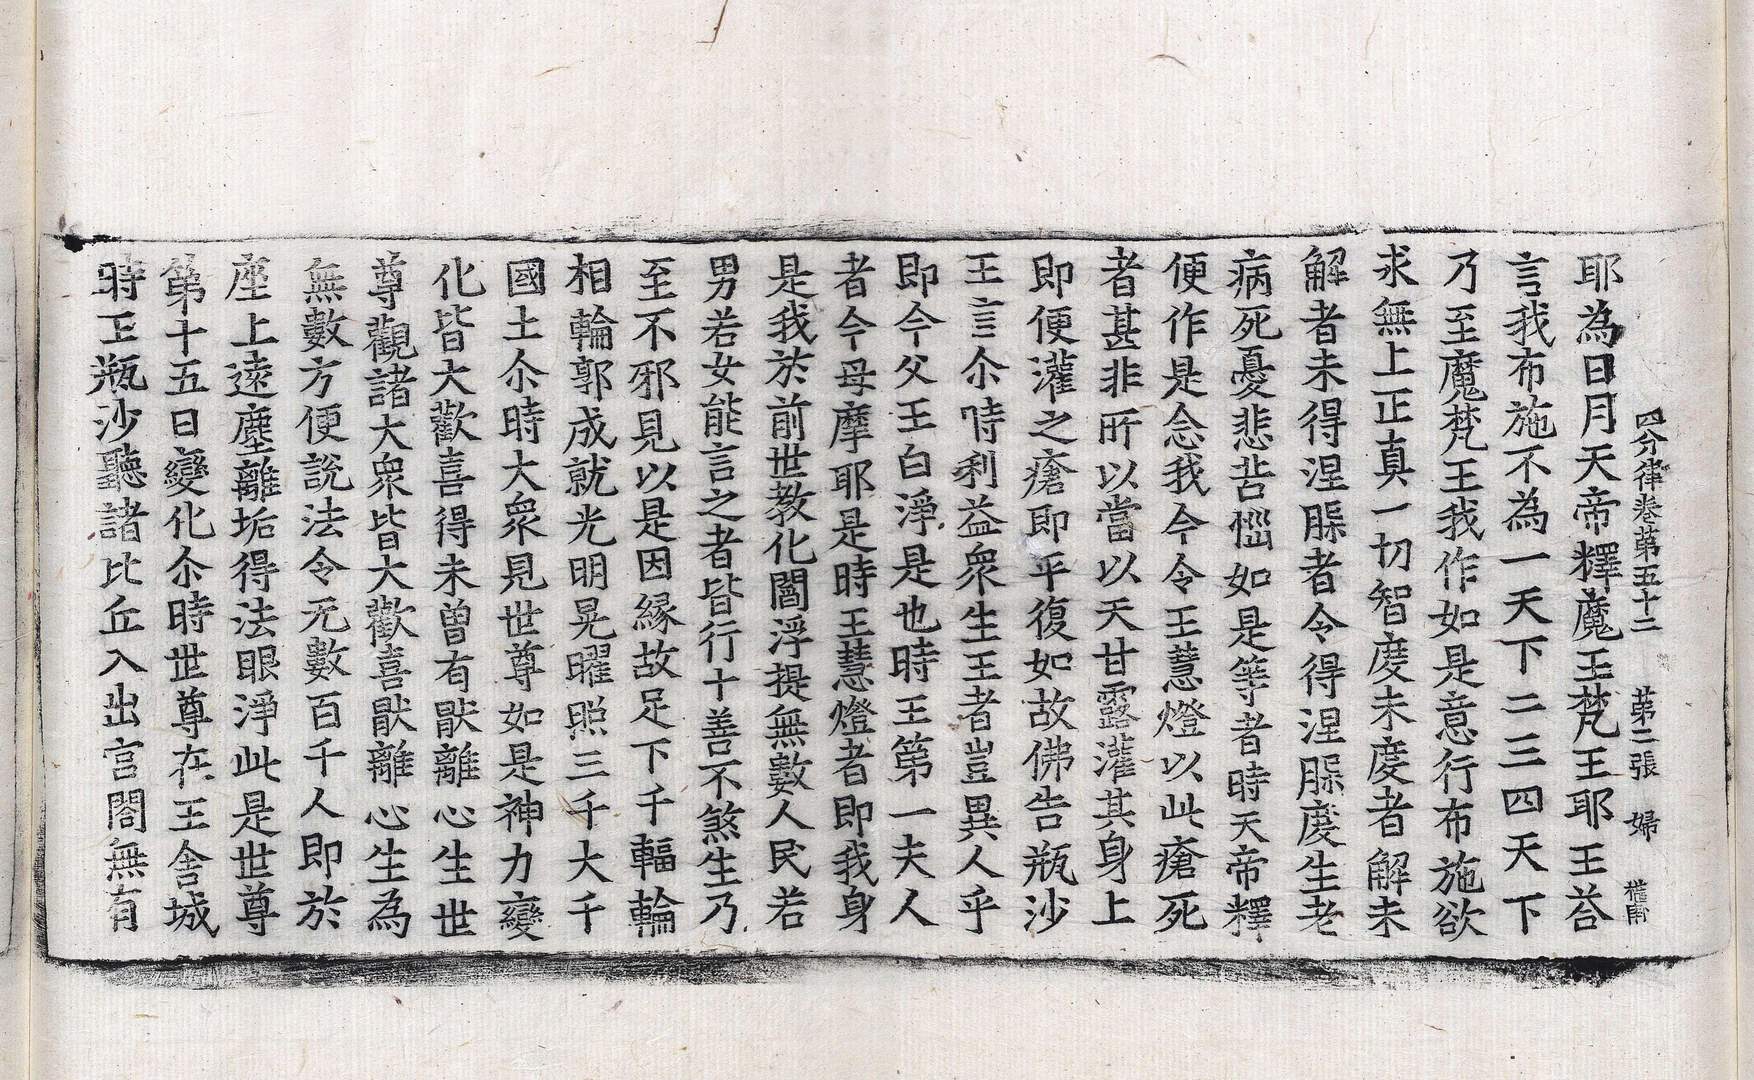 四分律卷第五十二 第二張 婦
耶為日月天帝釋魔王梵王耶王荅
言我布施不為一天下二三四天下
乃至魔梵王我作如是意行布施欲
求無上正真一切智度未度者解未
解者未得涅槃者令得涅槃度生老
病死憂悲苦惱如是等者時天帝釋
便作是念我今令王慧燈以此瘡死
者甚非所以當以天甘露灌其身上
即便灌之瘡即平復如故佛告瓶沙
王言尒時利益衆生王者豈異人乎
即今父王白淨是也時王第一夫人
者今母摩耶是時王慧燈者即我身
是我於前世教化閻浮提無數人民若
男若女能言之者皆行十善不煞生乃
至不邪見以是因緣故足下千輻輪
相輪郭成就光明晃曜照三千大千
國土尒時大衆見世尊如是神力變
化皆大歡喜得未曾有猒離心生世
尊觀諸大衆皆大歡喜猒離心生為
無數方便說法令无數百千人即於
座上遠塵離垢得法眼淨此是世尊
第十五日變化尒時世尊在王舍城
時王瓶沙聽諸比丘入出宮閤無有